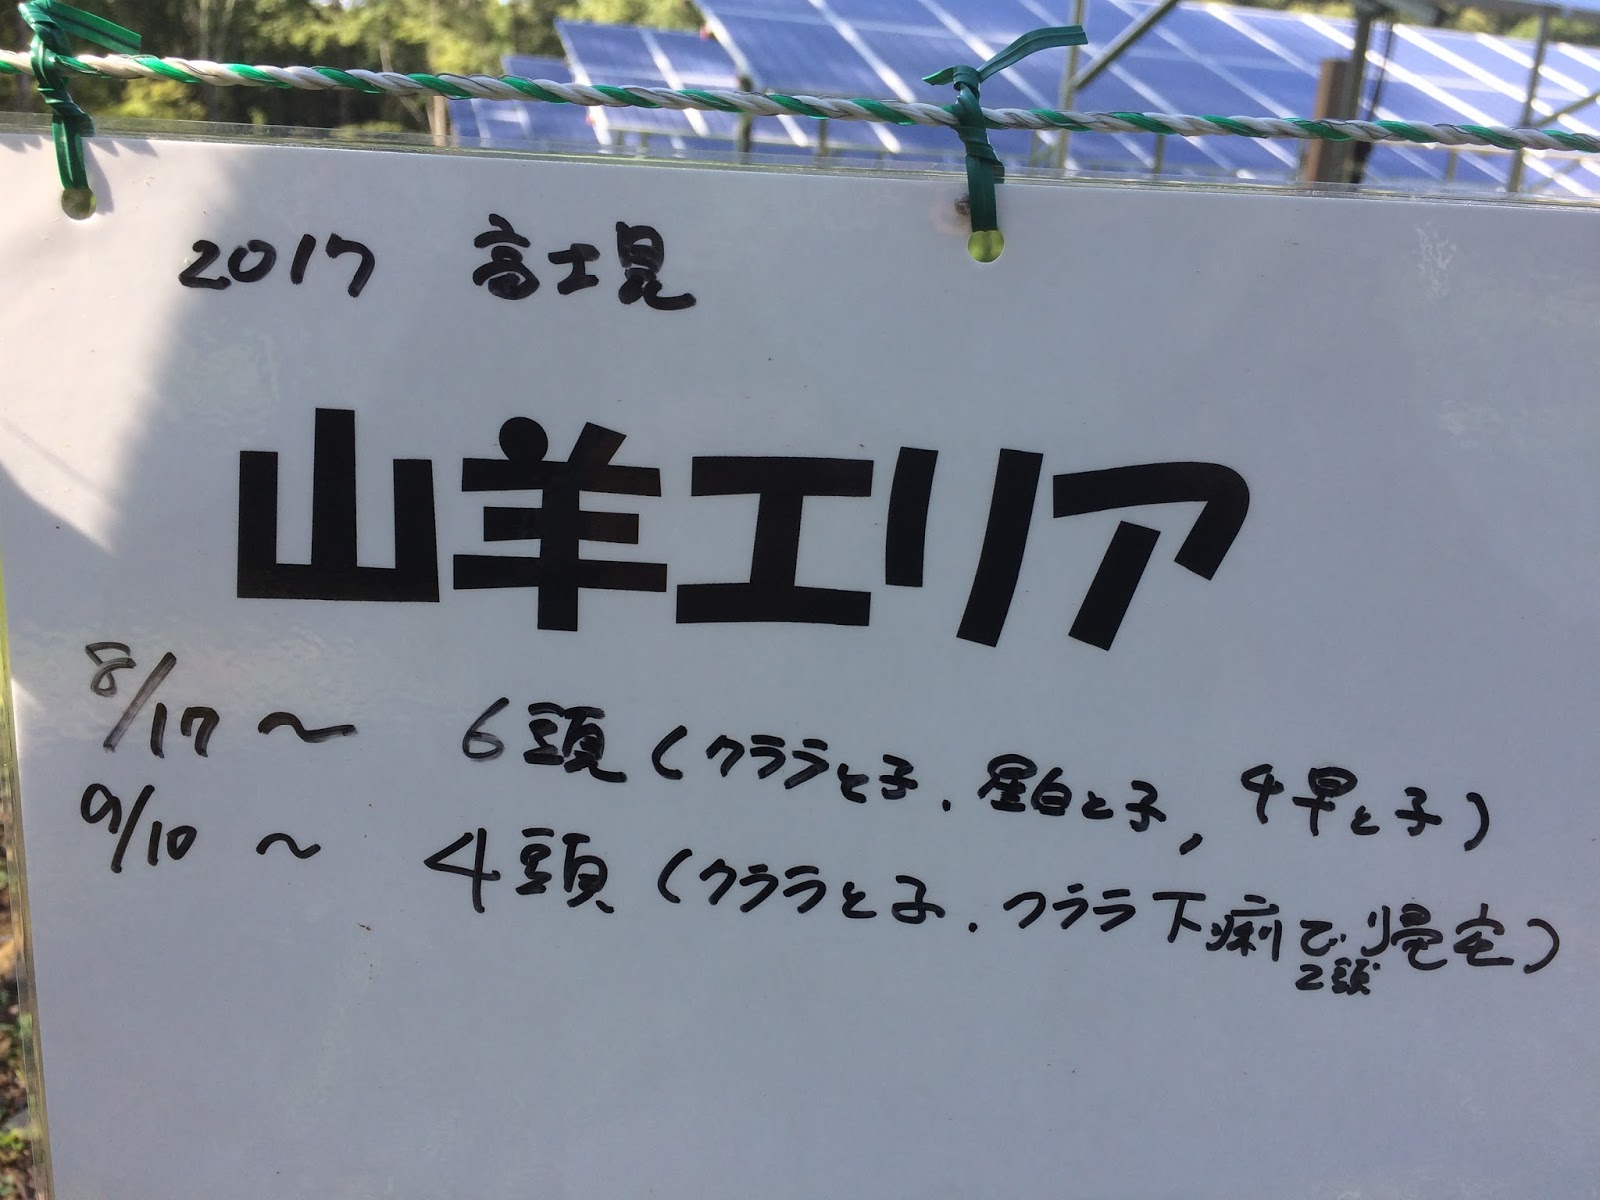 2017 富士見
山羊エリア
8/17 〜 6頭(クララと子、星白と子、千早と子)
9/10 〜 4頭(クララと子、クララ下痢で帰宅)
2頭